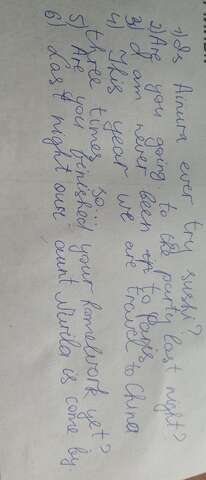 1) Is Ainura ever try sushi?
2) Are you going to the party last night?
3) I am never been up to Paris
4) This year we are travel to China
three times so...
5) Are you finished your homework yet?
6) Last night our aunt Nurila is come by